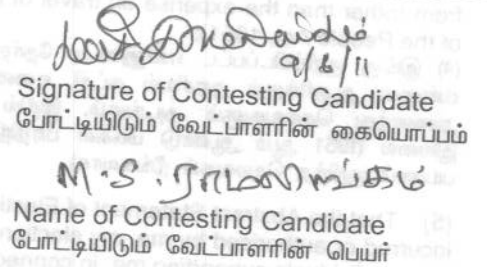 9/6/11
Signature of Contesting Candidate
போட்டியிடும் வேட்பாளரின் கையொப்பம்
M.S. ராமலிங்கம்
Name of Contesting Candidate
போட்டியிடும் வேட்பாளரின் பெயர்